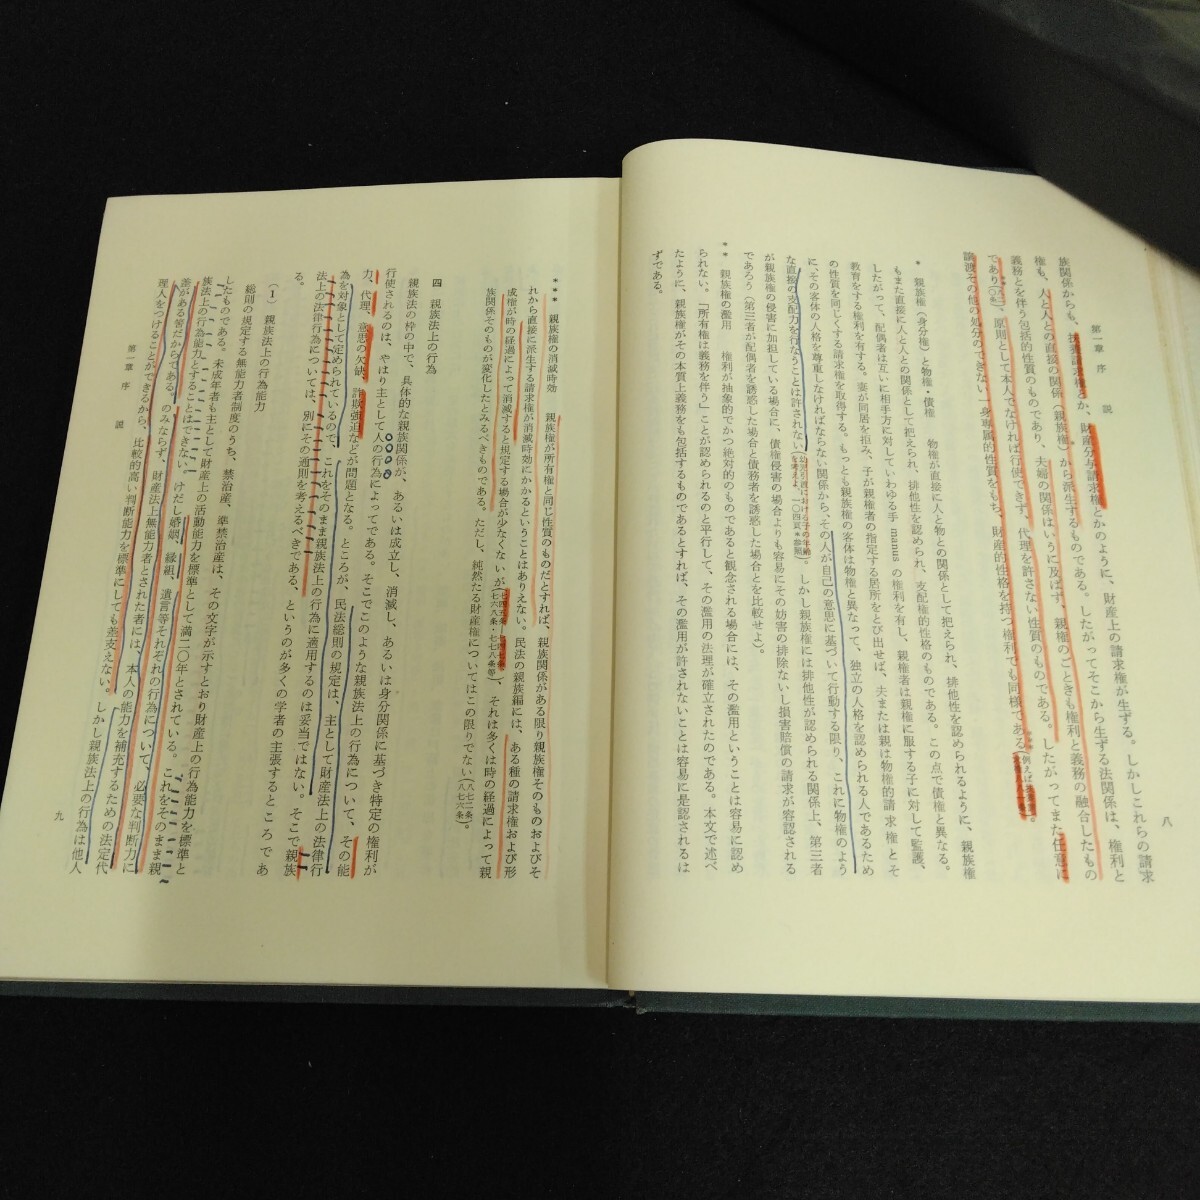 第一章　序　　説
八
族関係からも、扶養請求権とか、財産分与請求権とかのように、財産上の請求権が生ずる。しかしこれらの請求
権も、人と人との直接の関係（親族権）から派生するものである。したがってそこから生ずる法関係は、権利と
義務とを伴う包括的性質のものであり、夫婦の関係はいうに及ばず、親権のごときも権利と義務の融合したもの
であり、原則として本人でなければ行使できず、代理を許さない性質のものである。したがってまた任意に
譲渡その他の処分のできない一身専属的性質をもち、財産的性格を持つ権利でも同様である
＊　親族権（身分権）と物権・債権　　物権が直接に人と物との関係として把えられ、排他性を認められるように、親族権
もまた直接に人と人との関係として把えられ、排他性を認められ、支配権的性格のものである。この点で債権と異なる。
したがって、配偶者は互いに相手方に対していわゆる手 manus の権利を有し、親権者は親権に服する子に対して監護、
教育をする権利を有する。妻が同居を拒み、子が親権者の指定する居所をとび出せば、夫または親は物権的請求権とそ
の性質を同じくする請求権を取得する。もっとも親族権の客体は物権と異なって、独立の人格を認められる人であるため
に、その客体の人格を尊重しなければならない関係から、その人が自己の意思に基づいて行動する限り、これに物権のよう
な直接の支配力を行なうことは許されない（幼児引渡における子の年齢を考えよ、一〇四頁＊参照）。しかし親族権には排他性が認められる関係上、第三者
が親族権の侵害に加担している場合に、債権侵害の場合よりも容易にその妨害の排除ないし損害賠償の請求が容認される
であろう（第三者が配偶者を誘惑した場合と債務者を誘惑した場合とを比較せよ）。
＊＊　親族権の濫用　　権利が抽象的でかつ絶対的のものであると観念される場合には、その濫用ということは容易に認め
られない。「所有権は義務を伴う」ことが認められるのと平行して、その濫用の法理が確立されたのである。本文で述べ
たように、親族権がその本質上義務をも包括するものであるとすれば、その濫用が許されないことは容易に是認されるは
ずである。
＊＊＊　親族権の消滅時効　　親族権が所有権と同じ性質のものだとすれば、親族関係がある限り親族権そのものおよびそ
れから直接に派生する請求権が消滅時効にかかるということはありえない。民法の親族編には、ある種の請求権および形
成権が時の経過によって消滅すると規定する場合が少なくないが（七四五条・七四七条・七六八条・七七八条等）、それは多くは時の経過によって親
族関係そのものが変化したとみるべきものである。ただし、純然たる財産権についてはこの限りでない（八七二条・八七六条）。
四　親族法上の行為
親族法の枠の中で、具体的な親族関係が、あるいは成立し、消滅し、あるいは身分関係に基づき特定の権利が
行使されるのは、やはり主として人の行為によってである。そこでこのような親族法上の行為について、その能
力、代理、意思の欠缺、詐欺強迫などが問題となる。ところが、民法総則の規定は、主として財産法上の法律行
為を対象として定められているので、これをそのまま親族法上の行為に適用するのは妥当ではない。そこで親族
法上の法律行為については、別にその通則を考えるべきである、というのが多くの学者の主張するところであ
る。
（１）　親族法上の行為能力
総則の規定する無能力者制度のうち、禁治産、準禁治産は、その文字が示すとおり財産上の行為能力を標準と
したものである。未成年者も主として財産上の活動能力を標準として満二〇年とされている。これをそのまま親
族法上の行為能力とすることはできない。けだし婚姻、縁組、遺言等それぞれの行為について、必要な判断力に
差がある筈だからである。のみならず、財産法上無能力者とされた者には、本人の能力を補充するための法定代
理人をつけることができるから、比較的高い判断能力を標準にしても差支えない。しかし親族法上の行為は他人
第一章　序　　説
九